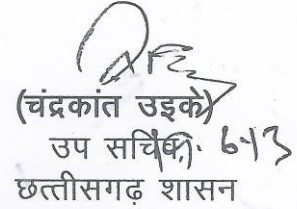 (चंद्रकांत उइके)
उप सचिव
छत्तीसगढ़ शासन